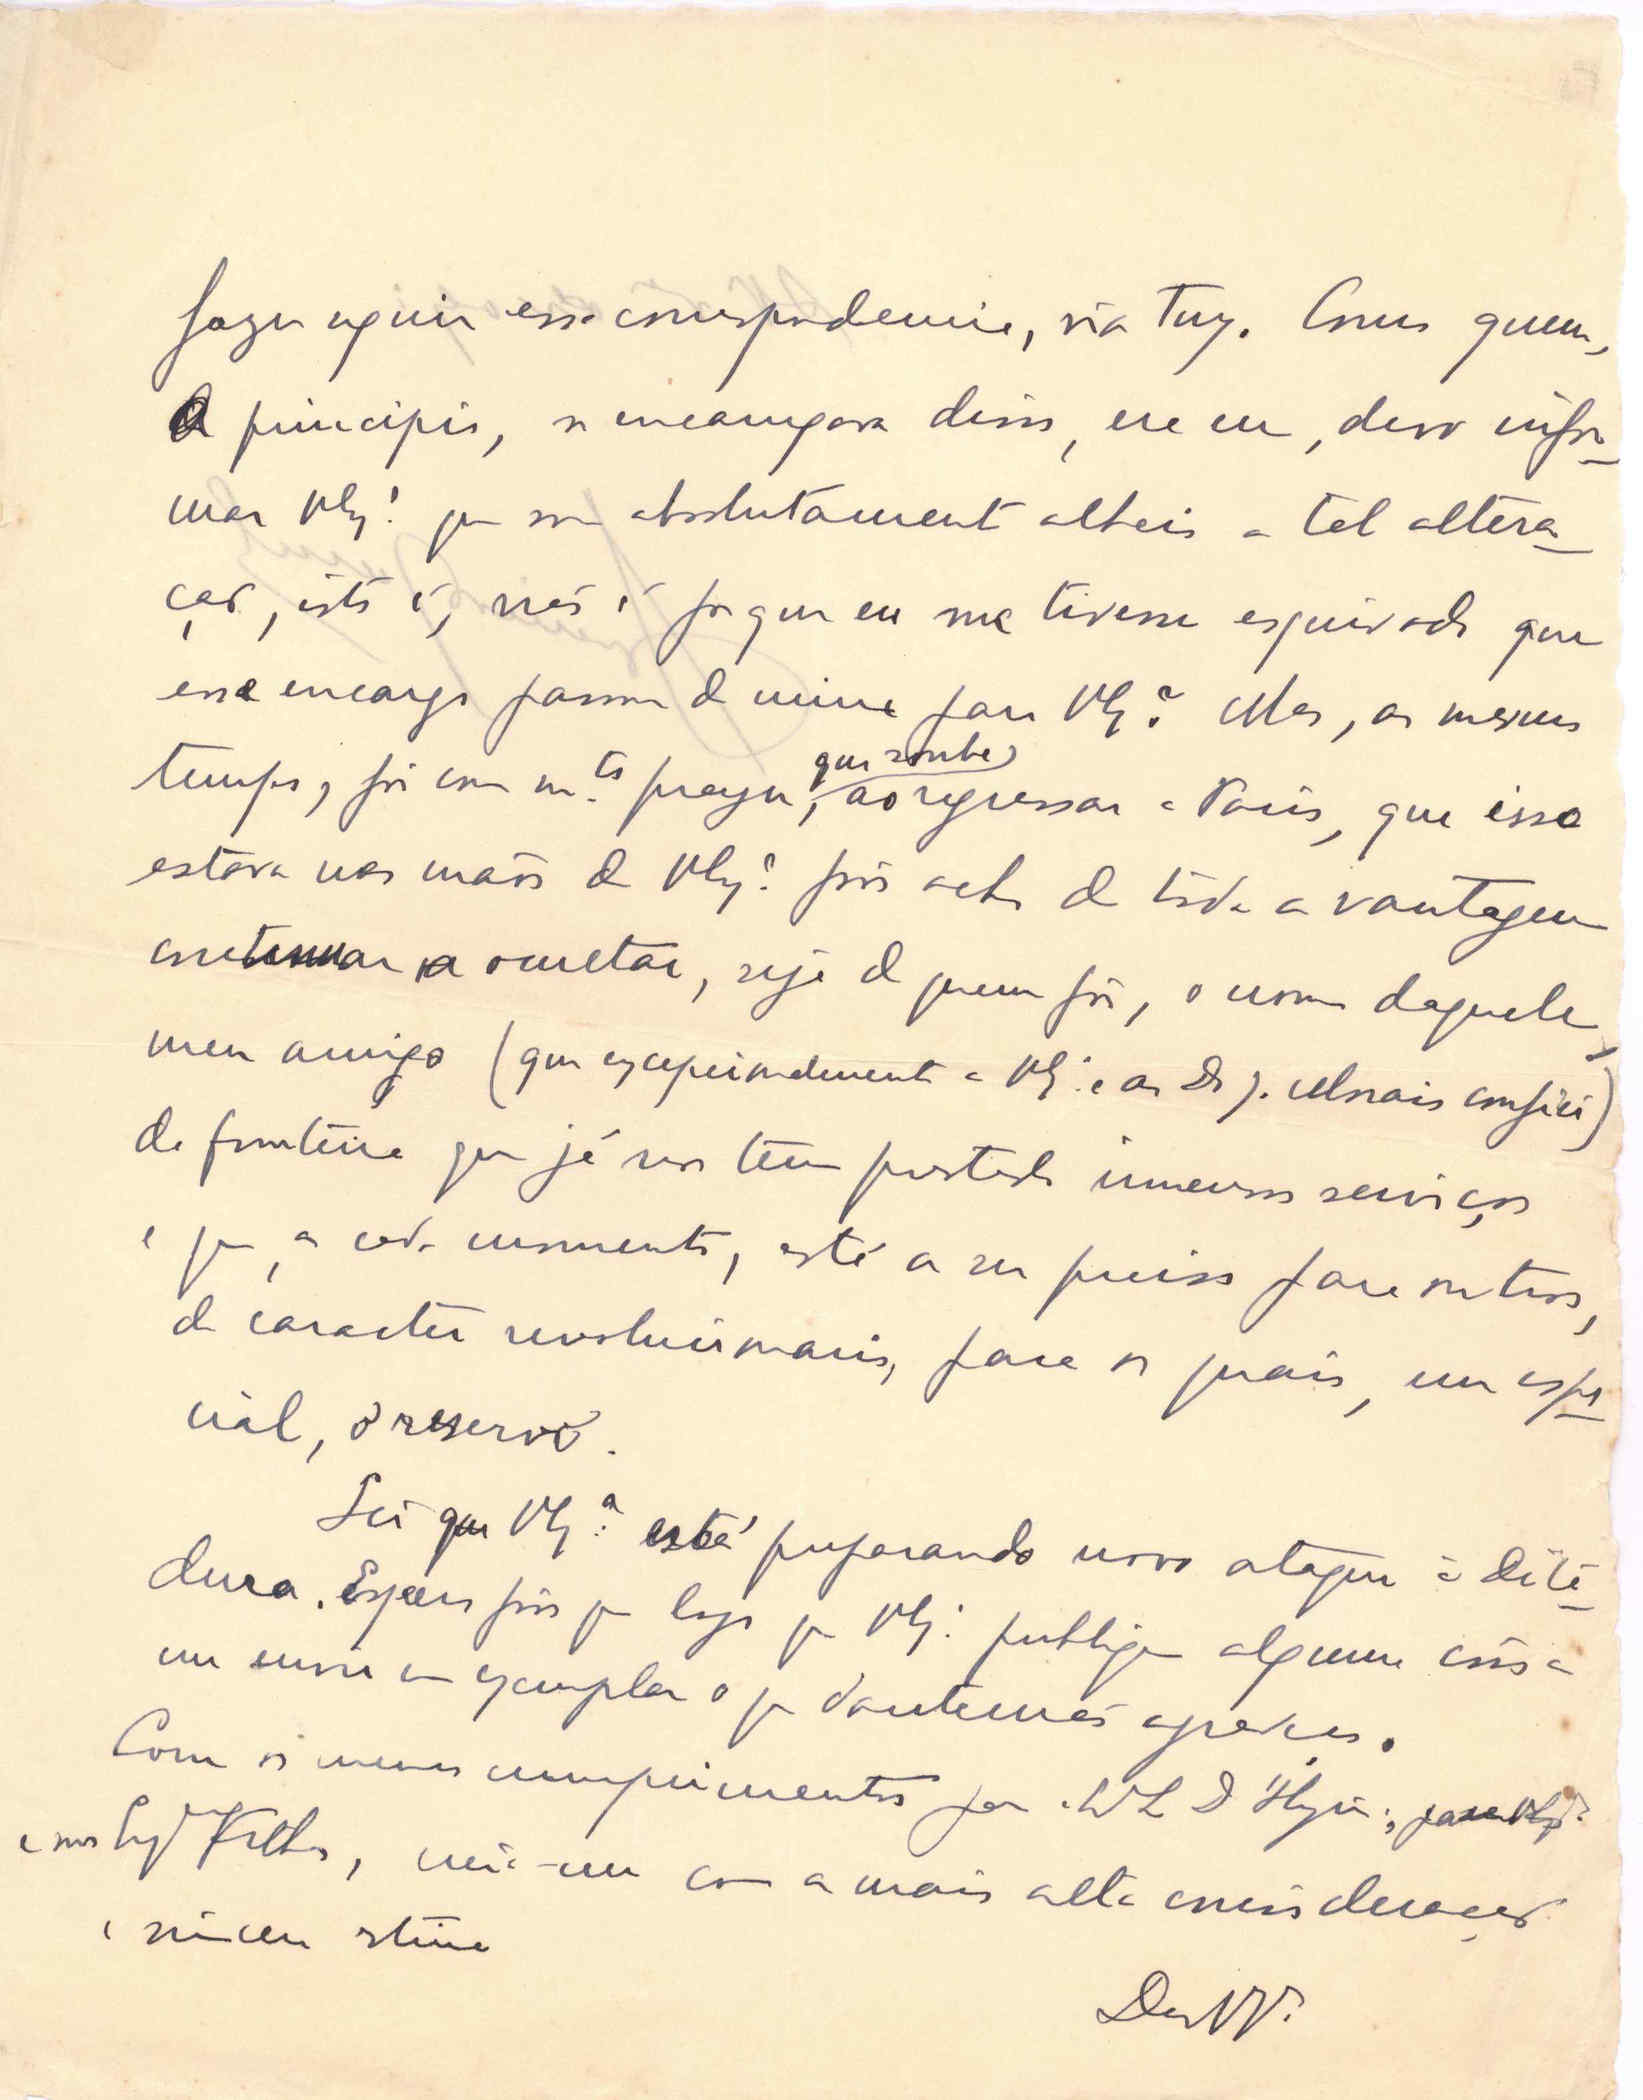 fazer seguir essa correspondencia, via Tuy. Como quem,
a principio, se encarregava disso, era eu, devo infor-
mar V. Ex.ª que sou absolutamente alheio a tal altera-
ção, isto é, não é porque eu me tivesse esquivado que
esse encargo passou de mim para V. Ex.ª Mas, ao mesmo
tempo, foi com m.to prazer, que soube, ao regressar a Paris, que isso
estava nas mãos de V. Ex.ª pois acho de toda a vantagem
continuar a ocultar, seja de quem fôr, o nome daquele
meu amigo (que excepcionalmente a V. Ex.ª e ao Dr J. Morais confiei)
da fronteira que já nos tem prestado imensos serviços
e que, a cada momento, está a ser preciso para outros,
de caracter revolucionario, para os quais, em espe-
cial, o reservo.
Sei que V. Ex.ª está preparando novo ataque à Dita-
dura. Espero pois que logo que V. Ex.ª publique alguma coisa
me envie um exemplar o que dantemão agradeço.
Com os meus cumprimentos para
e seus Filhos, com a mais alta consideração
e sincera estima